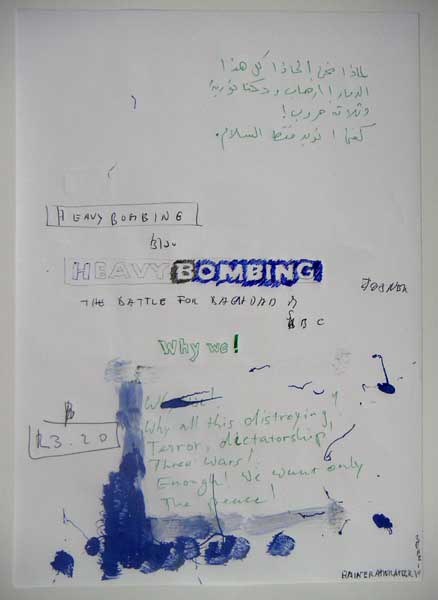 لماذا نحن! لماذا كل هذا
الدمار! ارهاب و دكتاتورية!
وثلاثة حروب!
كفى! نريد فقط السلام.
HEAVY BOMBING
HEAVY BOMBING
THE BATTLE FOR BAGHDAD
BBC
Why we!
Why all this distroying,
Terror, dictatorship,
Three Wars!
Enough! We want only
The peace!